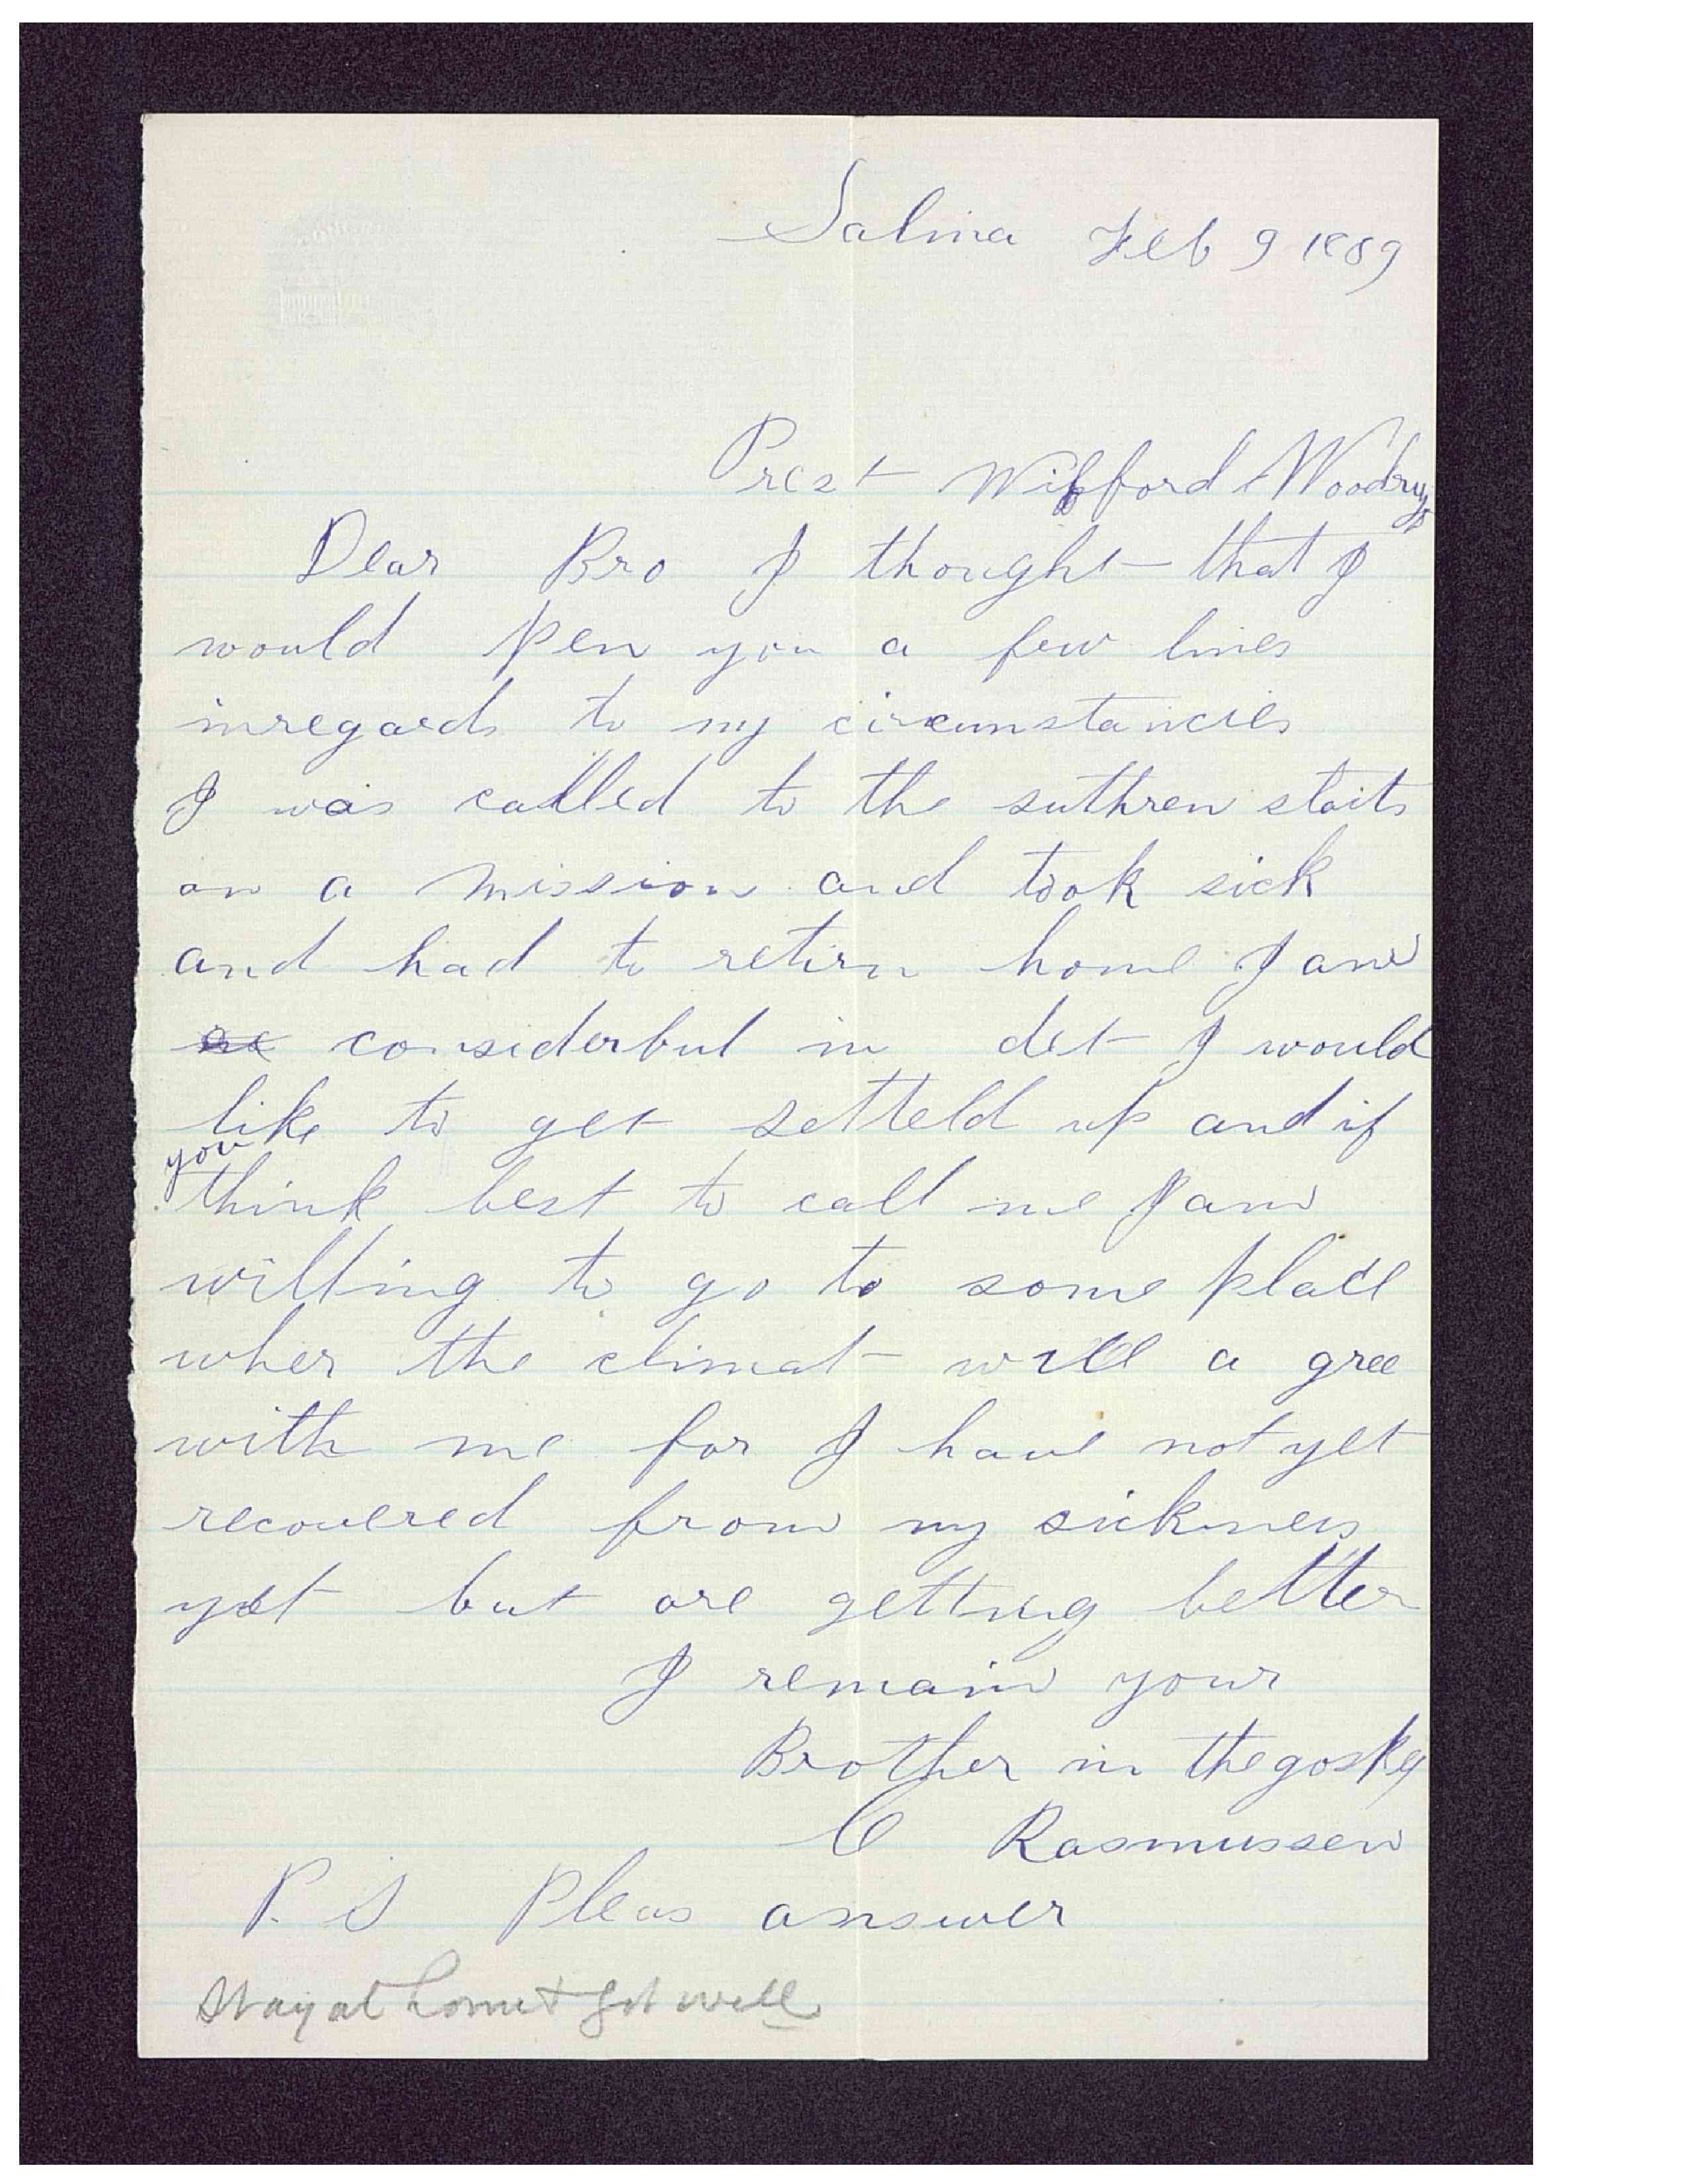 Salina Feb 9 1889
Prest Wilford Woodruff
Dear Bro I thought that I
would pen you a few lines
inregards to my circumstancies
I was called to the suthren staits
on a mission and took sick
and had to retirn home I am
considerbul in det I would
like to get setteld up and if
you
think best to call me I am
willing to go to some place
wher the climat will a gree
with me for I have not yet
recovered from my sickness
yet but are getting better
I remain your
Brother in the gospel
C Rasmussen
P. S Pleas answer
Stay at home & get well